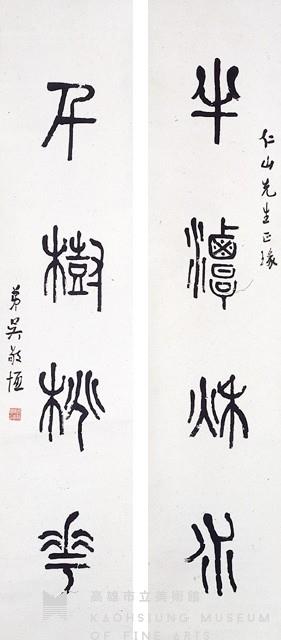 仁山先生正瑑
半潭秋水
千樹桃華
弟吳敬恆
高雄市立美術館
KAOHSIUNG MUSEUM
OF FINE ARTS